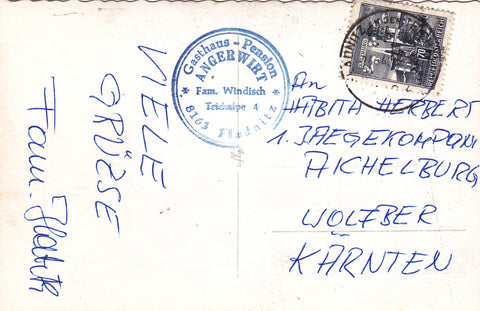 VIELE
GRÜSSE
Fam.
Gasthaus - Pension
ANGERWIRT
Fam. Windisch
Teichalpe 4
8163 Fladnitz
An
HERBERT
1. JAEGEKOMPANI
AICHELBURG
WOLFBER
KÄRNTEN